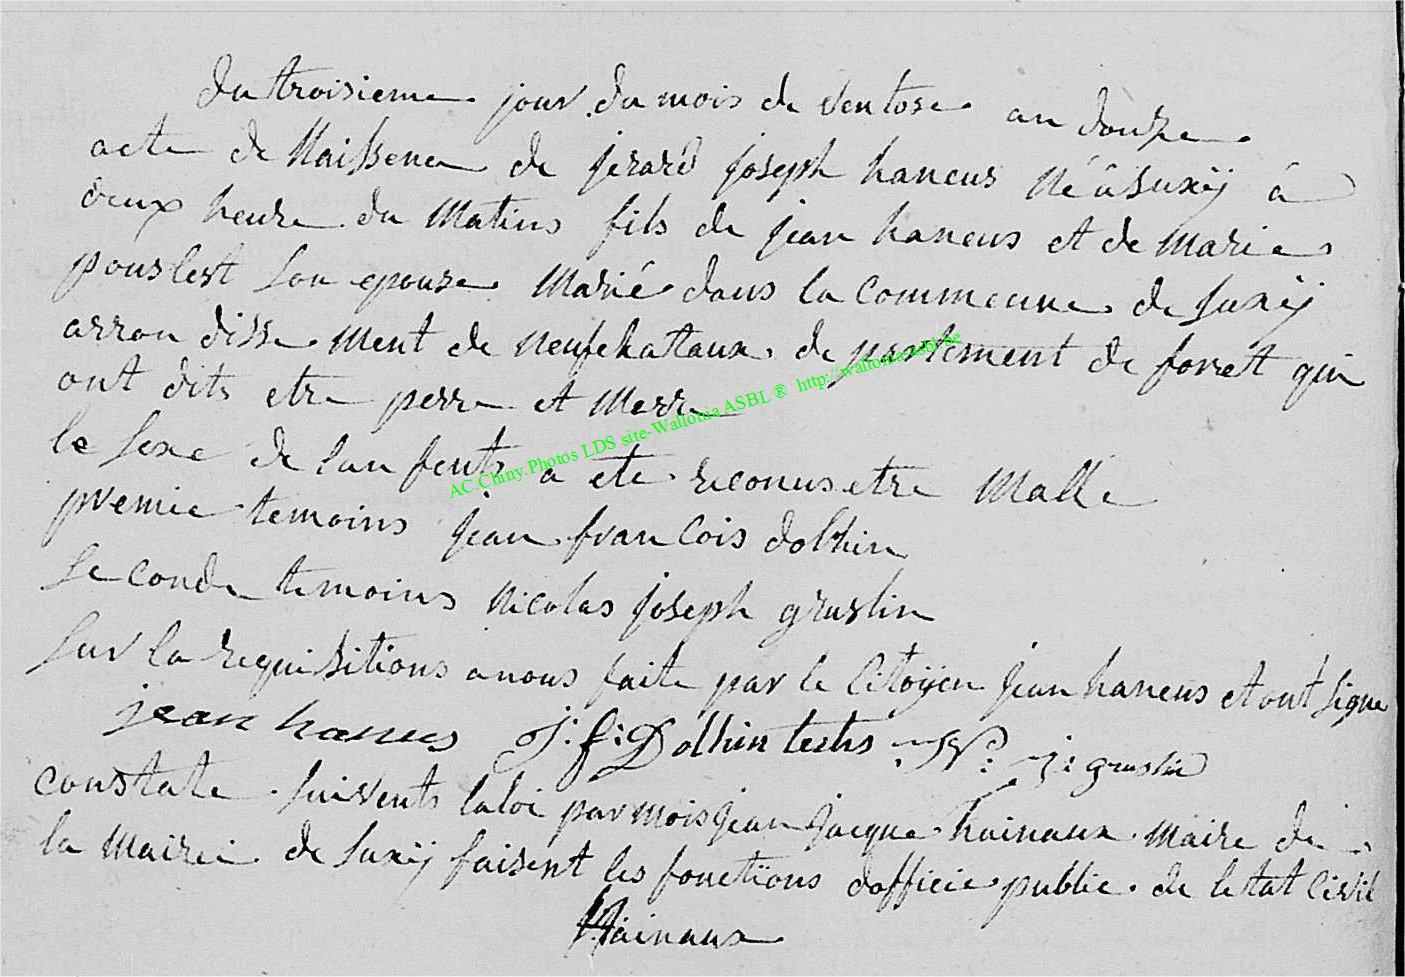 Du troisieme jour du mois de ventose an douze
acte de Naissence de jerard joseph haneus né a Suxÿ à
deux heure du Matins fils de jean haneus et de Marie
pourlest Son epouse Marié dans la Commeune de Suxÿ
arron disse Ment de neufchataux de partement de forrett qui
ont dits etre perre et Merre
le Sexe de lan fents a ete reconus etre Malle
premie temoins jean francois dolhin
Seconde temoins Nicolas joseph gruslin
Sur la requisitions a nous faite par le Citoÿen jean haneus et ont Signe
jean haneus J: f: Dolhin testis N: j: gruslin
constate Suivents la loi par mois jean jacque hainaux maire de
la Mairie de Suxÿ faisent les fonctions dofficie public de letat Civil
Hainaux
AC.Chiny.Photos LDS site-Wallonia ASBL ® http://wallonia-asbl.be